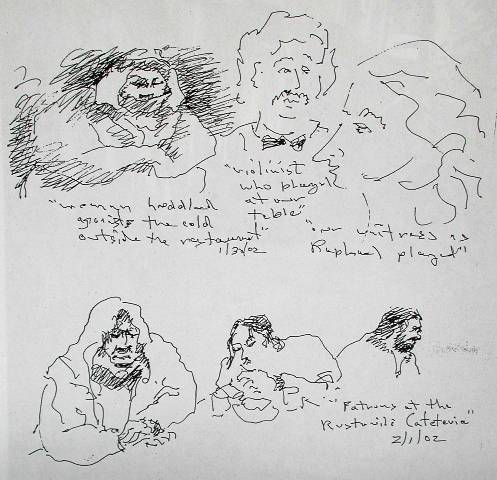 "woman huddled
against the cold
outside the restaurant"
1/30/02
"violinist
who played
at our
table"
"our waitress as
Raphael played"
"Patrons at the
Cafeteria"
2/1/02